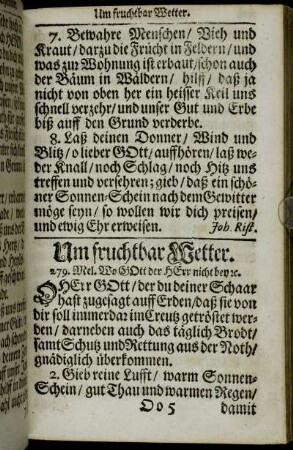 Um fruchtbar Wetter.
7. Bewahre Menschen/ Vieh und
Kraut/ darzu die Frücht in Feldern/ und
was zur Wohnung ist erbaut/ schon auch
der Bäum in Wäldern/ hilff/ daß ja
nicht von oben her ein heisser Keil uns
schnell verzehr/ und unser Gut und Erbe
biß auff den Grund verderbe.
8. Laß deinen Donner/ Wind und
Blitz/ o lieber GOtt/ auffhören/ laß we-
der Knall/ noch Schlag/ noch Hitz uns
treffen und versehren; gieb/ daß ein schö-
ner Sonnen-Schein nach dem Gewitter
möge seyn/ so wollen wir dich preisen/
und ewig Ehr erweisen. Joh. Rist.
Um fruchtbar Wetter.
279. Mel. Wo GOtt der HErr nicht bey ꝛc.
O HErr GOtt/ der du deiner Schaar
hast zugesagt auff Erden/ daß sie von
dir soll immerdar im Creutz getröstet wer-
den/ darneben auch das täglich Brodt/
samt Schutz und Rettung aus der Noth/
gnädiglich überkommen.
2. Gieb reine Lufft/ warm Sonnen-
Schein/ gut Thau und warmen Regen/
Oo 5 damit